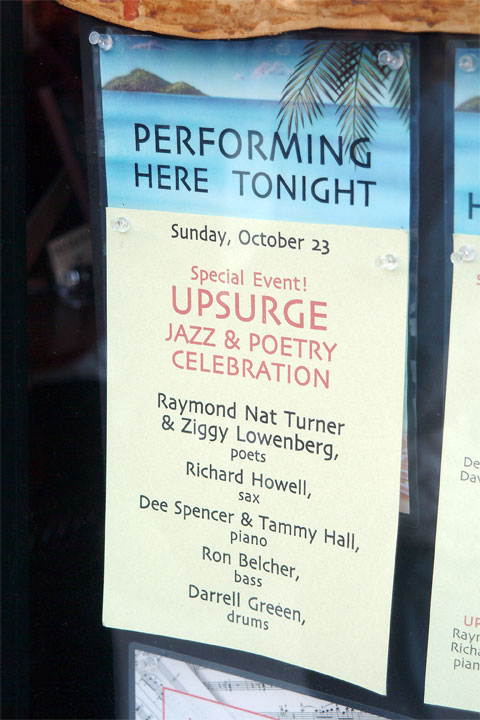 PERFORMING
HERE TONIGHT
Sunday, October 23
Special Event!
UPSURGE
JAZZ & POETRY
CELEBRATION
Raymond Nat Turner
& Ziggy Lowenberg,
poets
Richard Howell,
sax
Dee Spencer & Tammy Hall,
piano
Ron Belcher,
bass
Darrell Greeen,
drums
H
De
Dav
UP
Raym
Richa
pian